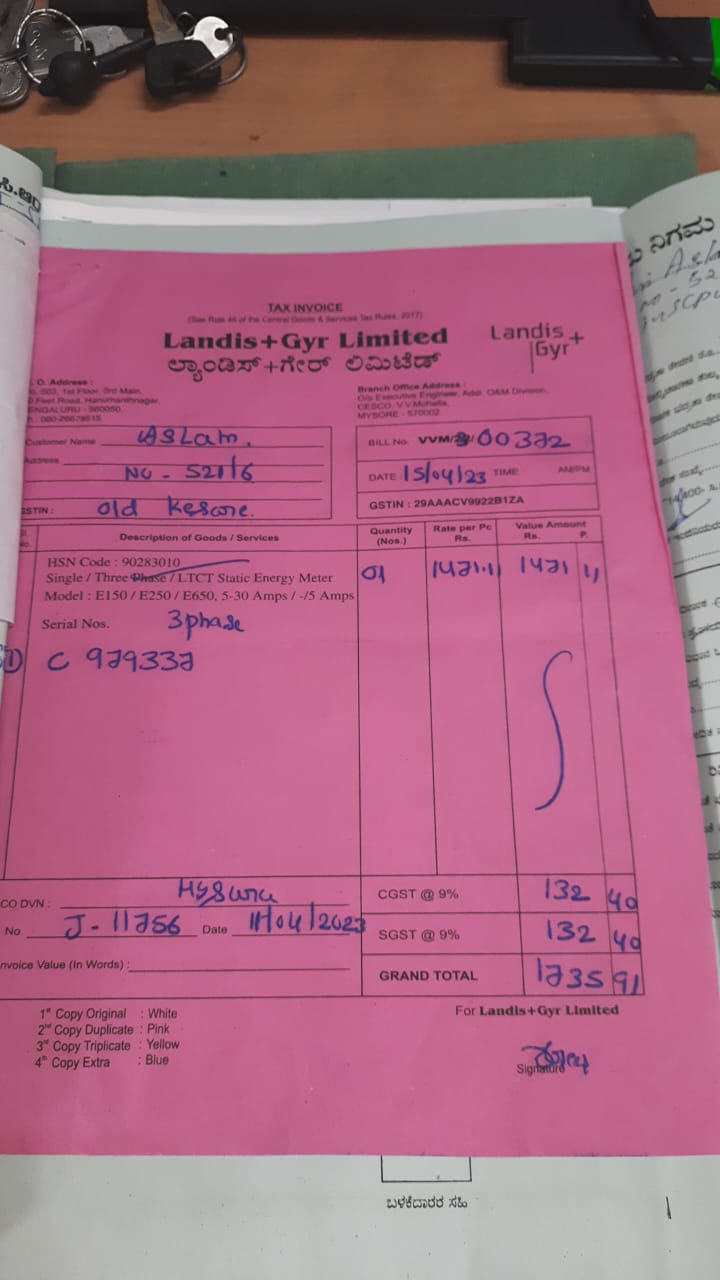 TAX INVOICE
(See Rule 46 of the Central Goods & Services Tax Rules, 2017)
Landis+Gyr Limited
ಲ್ಯಾಂಡಿಸ್+ಗೇರ್ ಲಿಮಿಟೆಡ್
Landis
Gyr+
. O. Address :
503, 1st Floor, 3rd Main,
Feet Road, Hanumanthnagar,
ENGALURU - 560050.
080-26678615
Branch Office Address :
C/o Executive Engineer, Add. O&M Division,
CESCO, V.V.Mohalla,
MYSORE - 570002
Customer Name ASLam.
Address No - 521/6
GSTIN : old Kesare.
BILL No. VVM/ 00372
DATE 15/04/23 TIME AM/PM
GSTIN : 29AAACV9922B1ZA
No. Description of Goods / Services Quantity (Nos.) Rate per Pc Rs. Value Amount Rs. P.
HSN Code : 90283010
Single / Three Phase / LTCT Static Energy Meter 01 1471.11 1471 11
Model : E150 / E250 / E650, 5-30 Amps / -/5 Amps
Serial Nos. 3phase
1) C 979337
CO DVN : Mysuru
No J-11756 Date 11/04/2023
nvoice Value (In Words) :
CGST @ 9% 132 40
SGST @ 9% 132 40
GRAND TOTAL 1735 91
1st Copy Original : White
2nd Copy Duplicate : Pink
3rd Copy Triplicate : Yellow
4th Copy Extra : Blue
For Landis+Gyr Limited
Signature
ಬಳಕೆದಾರರ ಸಹಿ
ನಿಗಮ